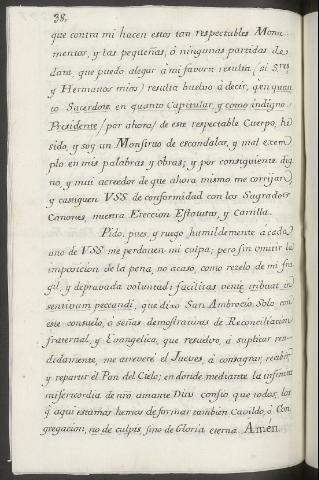 38,
que contra mi hacen estos tan respectables Monu
mentos, y las pequeñas, ó ningunas partidas de
data, que puedo alegar á mi favor: resulta (si S.res
y Hermanos mios) resulta buelvo á decir, q.e en quan
to Sacerdote, en quanto Capitular, y como indigno
Presidente (por ahora) de este respectable Cuerpo, hé
sido, y soy un Monstruo de escandalos, y mal exem
plo en mis palabras y obras; y por consiguiente dig
no, y mui acreedor de que ahora mismo me corrijan,
y castiguen VSS. de conformidad con los Sagrados
Canones, nuestra Ereccion Estatutos, y Cartilla.
Pido, pues, y ruego humildemente á cada
uno de VSS. me perdonen mi culpa; pero sin omitir la
imposicion de la pena, no acaso, como rezelo de mi fra
gil, y depravada voluntad: facilitas veniæ tribuat in
sentivum peccandi, que dixo San Ambrocio. Solo con
este consuelo, ó señas demostrativas de Reconciliacion
fraternal, y Evangelica, que resuelvo, á suplicar ren
didamente, me atreveré el Jueves, á consagrar, recibir,
y repartir el Pan del Cielo; en donde mediante la infinita
misericordia de nro amante Dios confio que todos los
q.e aqui estamos hemos de formar tambien Cavildo, ó Con
gregacion, no de culpis, sino de Gloria eterna. Amén.